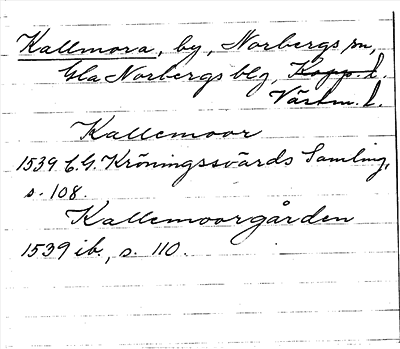 Kallmora, by, Norbergs sn,
Gla Norbergs blg, Kopp. l.
Västm. l.
Kallemoor
1539 C.G. Kröningssvärds Samling,
s. 108.
Kallemoorgården
1539 ib., s. 110.